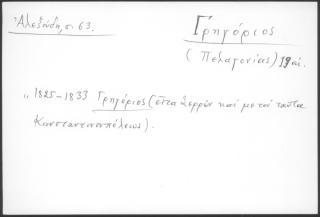 Ἀλεξούδη, σ. 63.
Γρηγόριος
(Πελαγονίας) 19 αἰ.
„ 1825-1833 Γρηγόριος (εἶτα Σερρῶν καί μετά ταῦτα
Κωνσταντινουπόλεως).